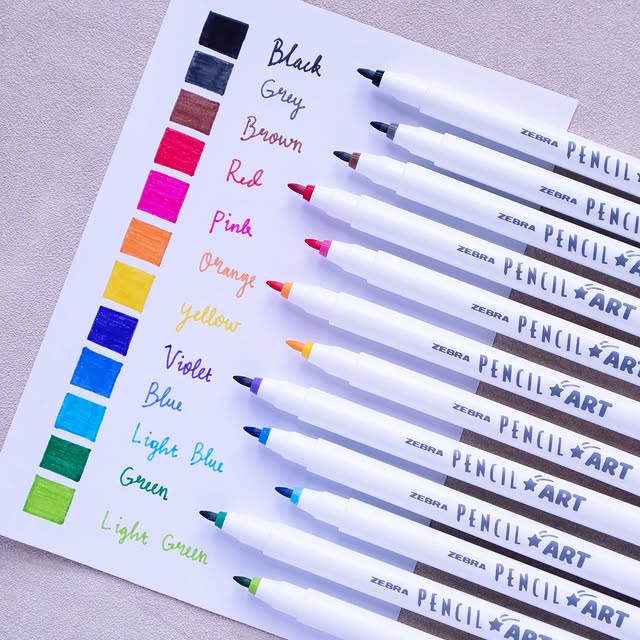 Black
Grey
Brown
Red
Pink
Orange
Yellow
Violet
Blue
Light Blue
Green
Light Green
ZEBRA PENCIL
ZEBRA PENCI
ZEBRA PENCIL A
ZEBRA PENCIL ART
ZEBRA PENCIL ART
ZEBRA PENCIL ART
ZEBRA PENCIL ART
ZEBRA PENCIL ART
ZEBRA PENCIL ART
ZEBRA PENCIL ART
ZEBRA PENCIL ART